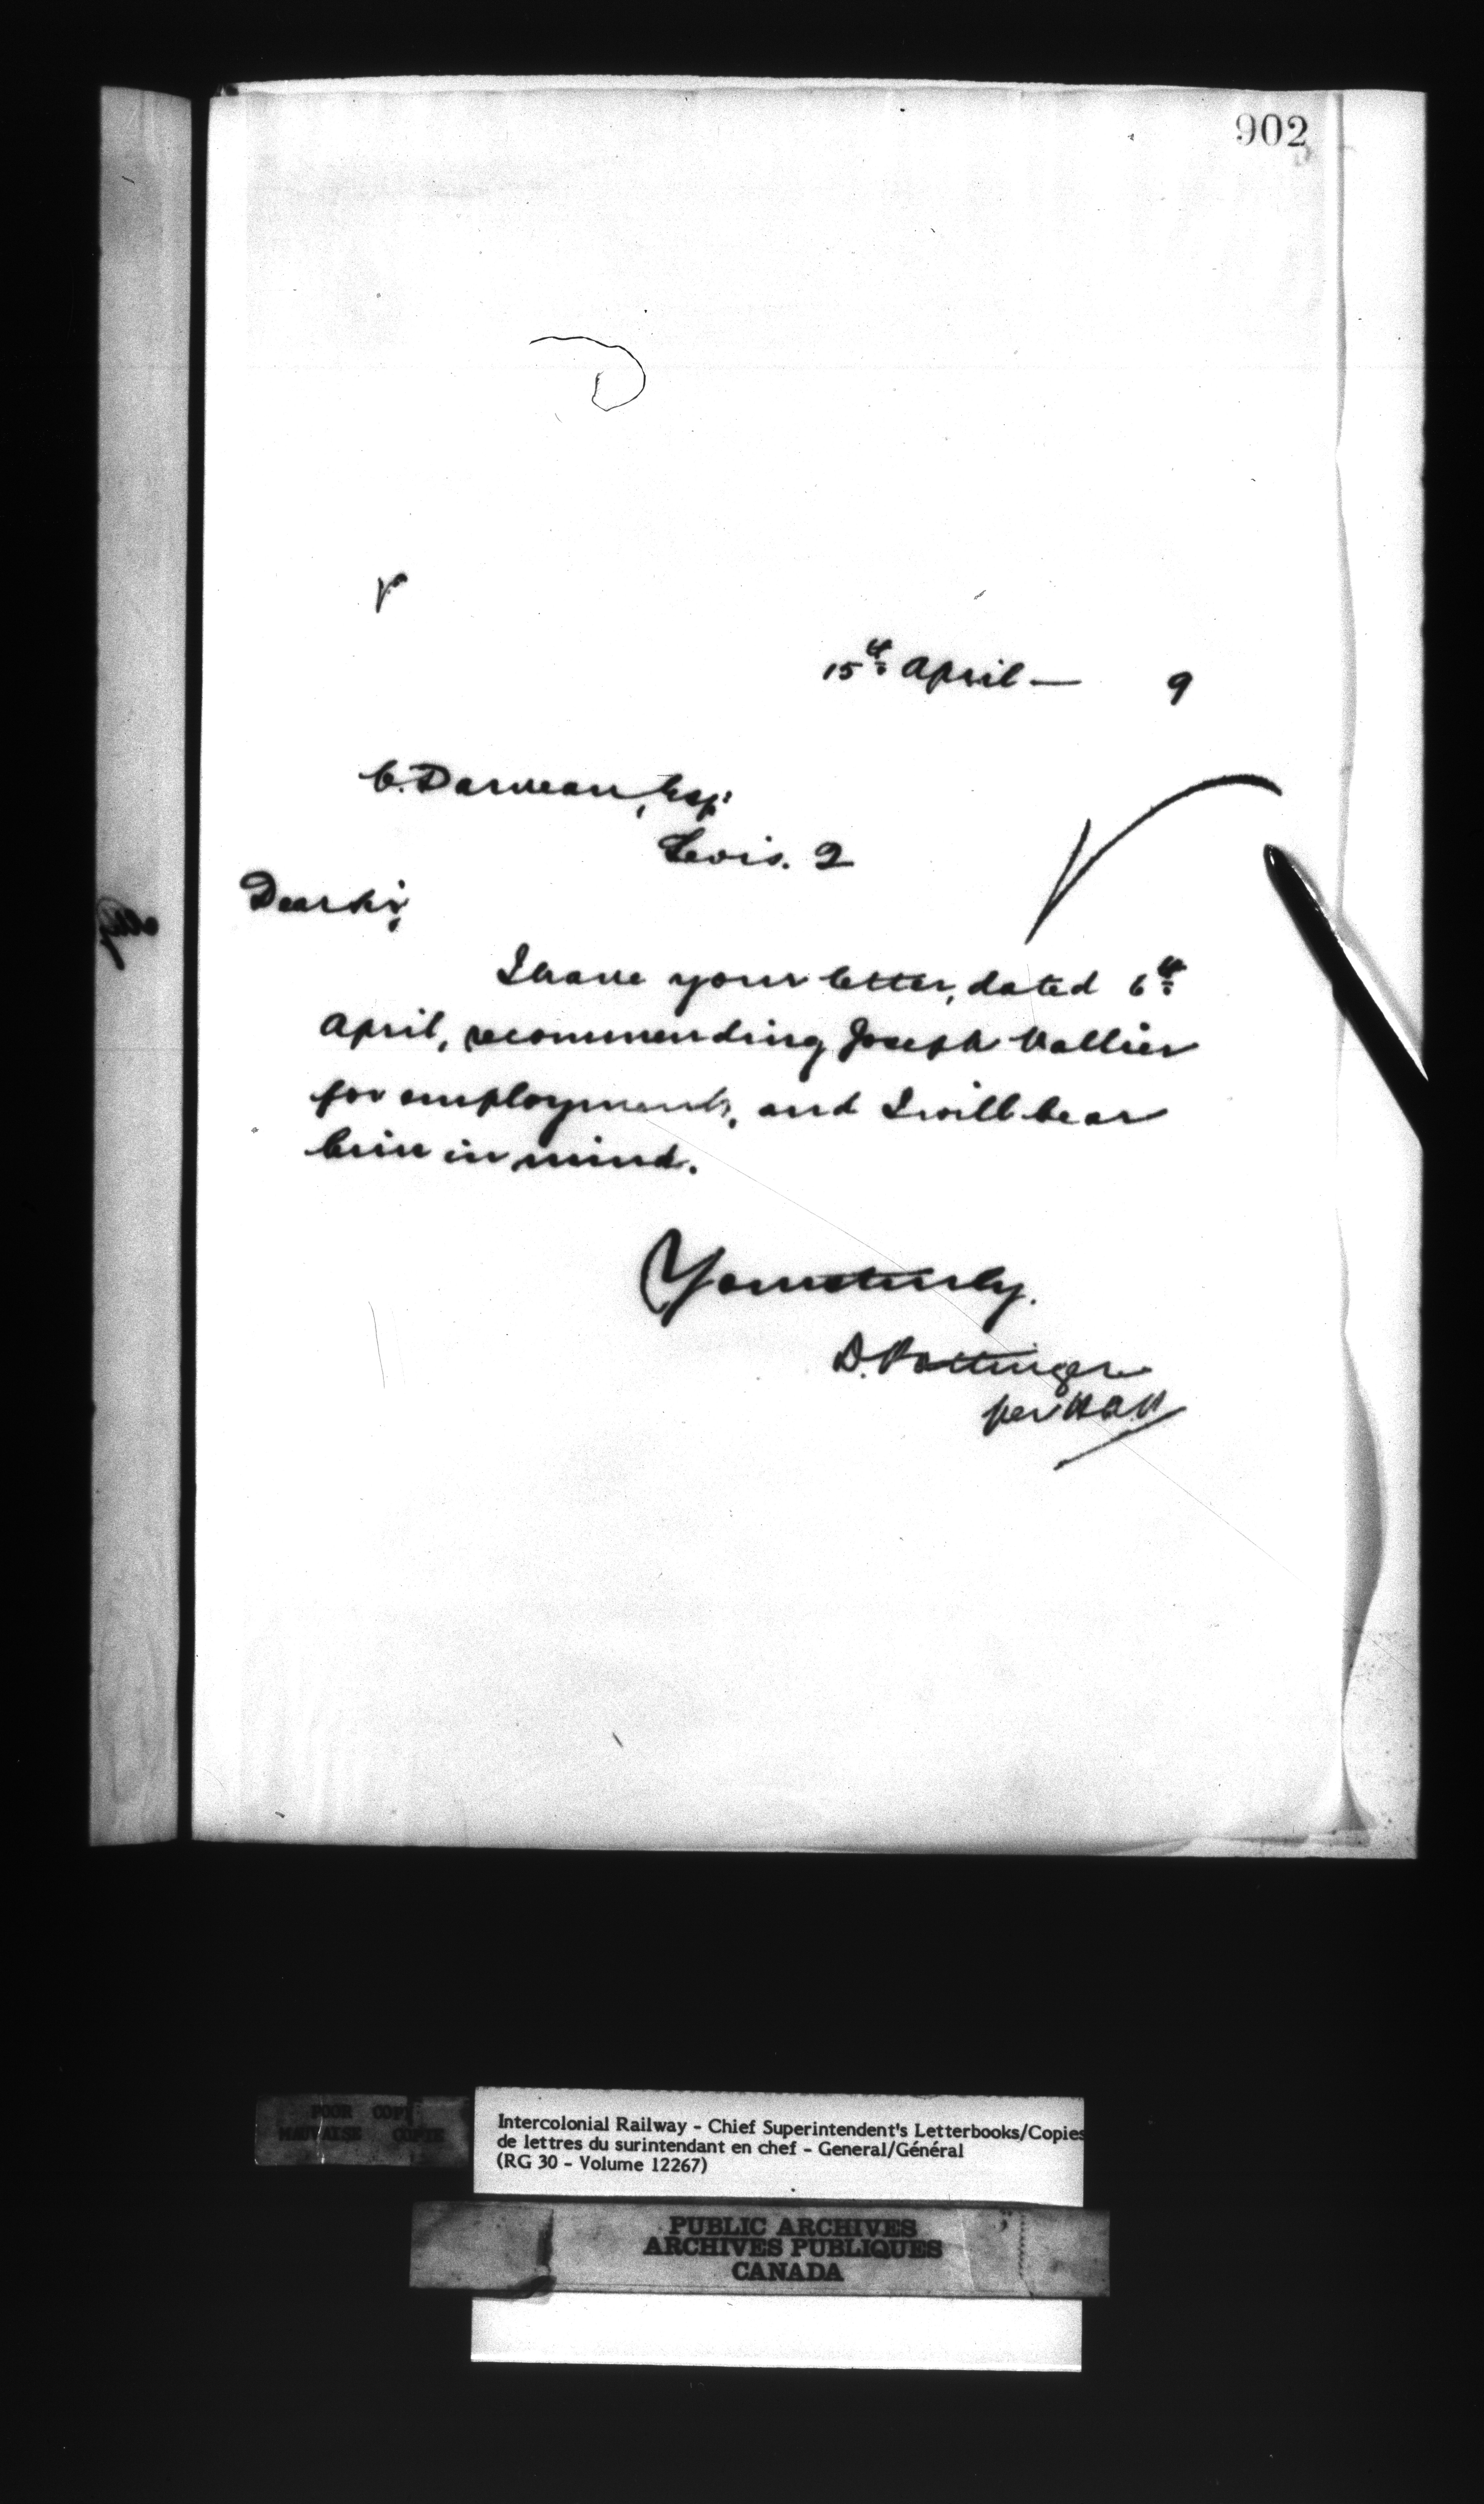 902
15th April — 9
C. Darveau, Esq:
Levis. Q
Dear Sir,
I have your letter, dated 6th
April, recommending Joseph Vallier
for employment, and I will bear
him in mind.
Yours truly.
D. Pottinger
per
POOR COPY
MAUVAISE COPIE
Intercolonial Railway - Chief Superintendent's Letterbooks/Copies
de lettres du surintendant en chef - General/Général
(RG 30 - Volume 12267)
PUBLIC ARCHIVES
ARCHIVES PUBLIQUES
CANADA